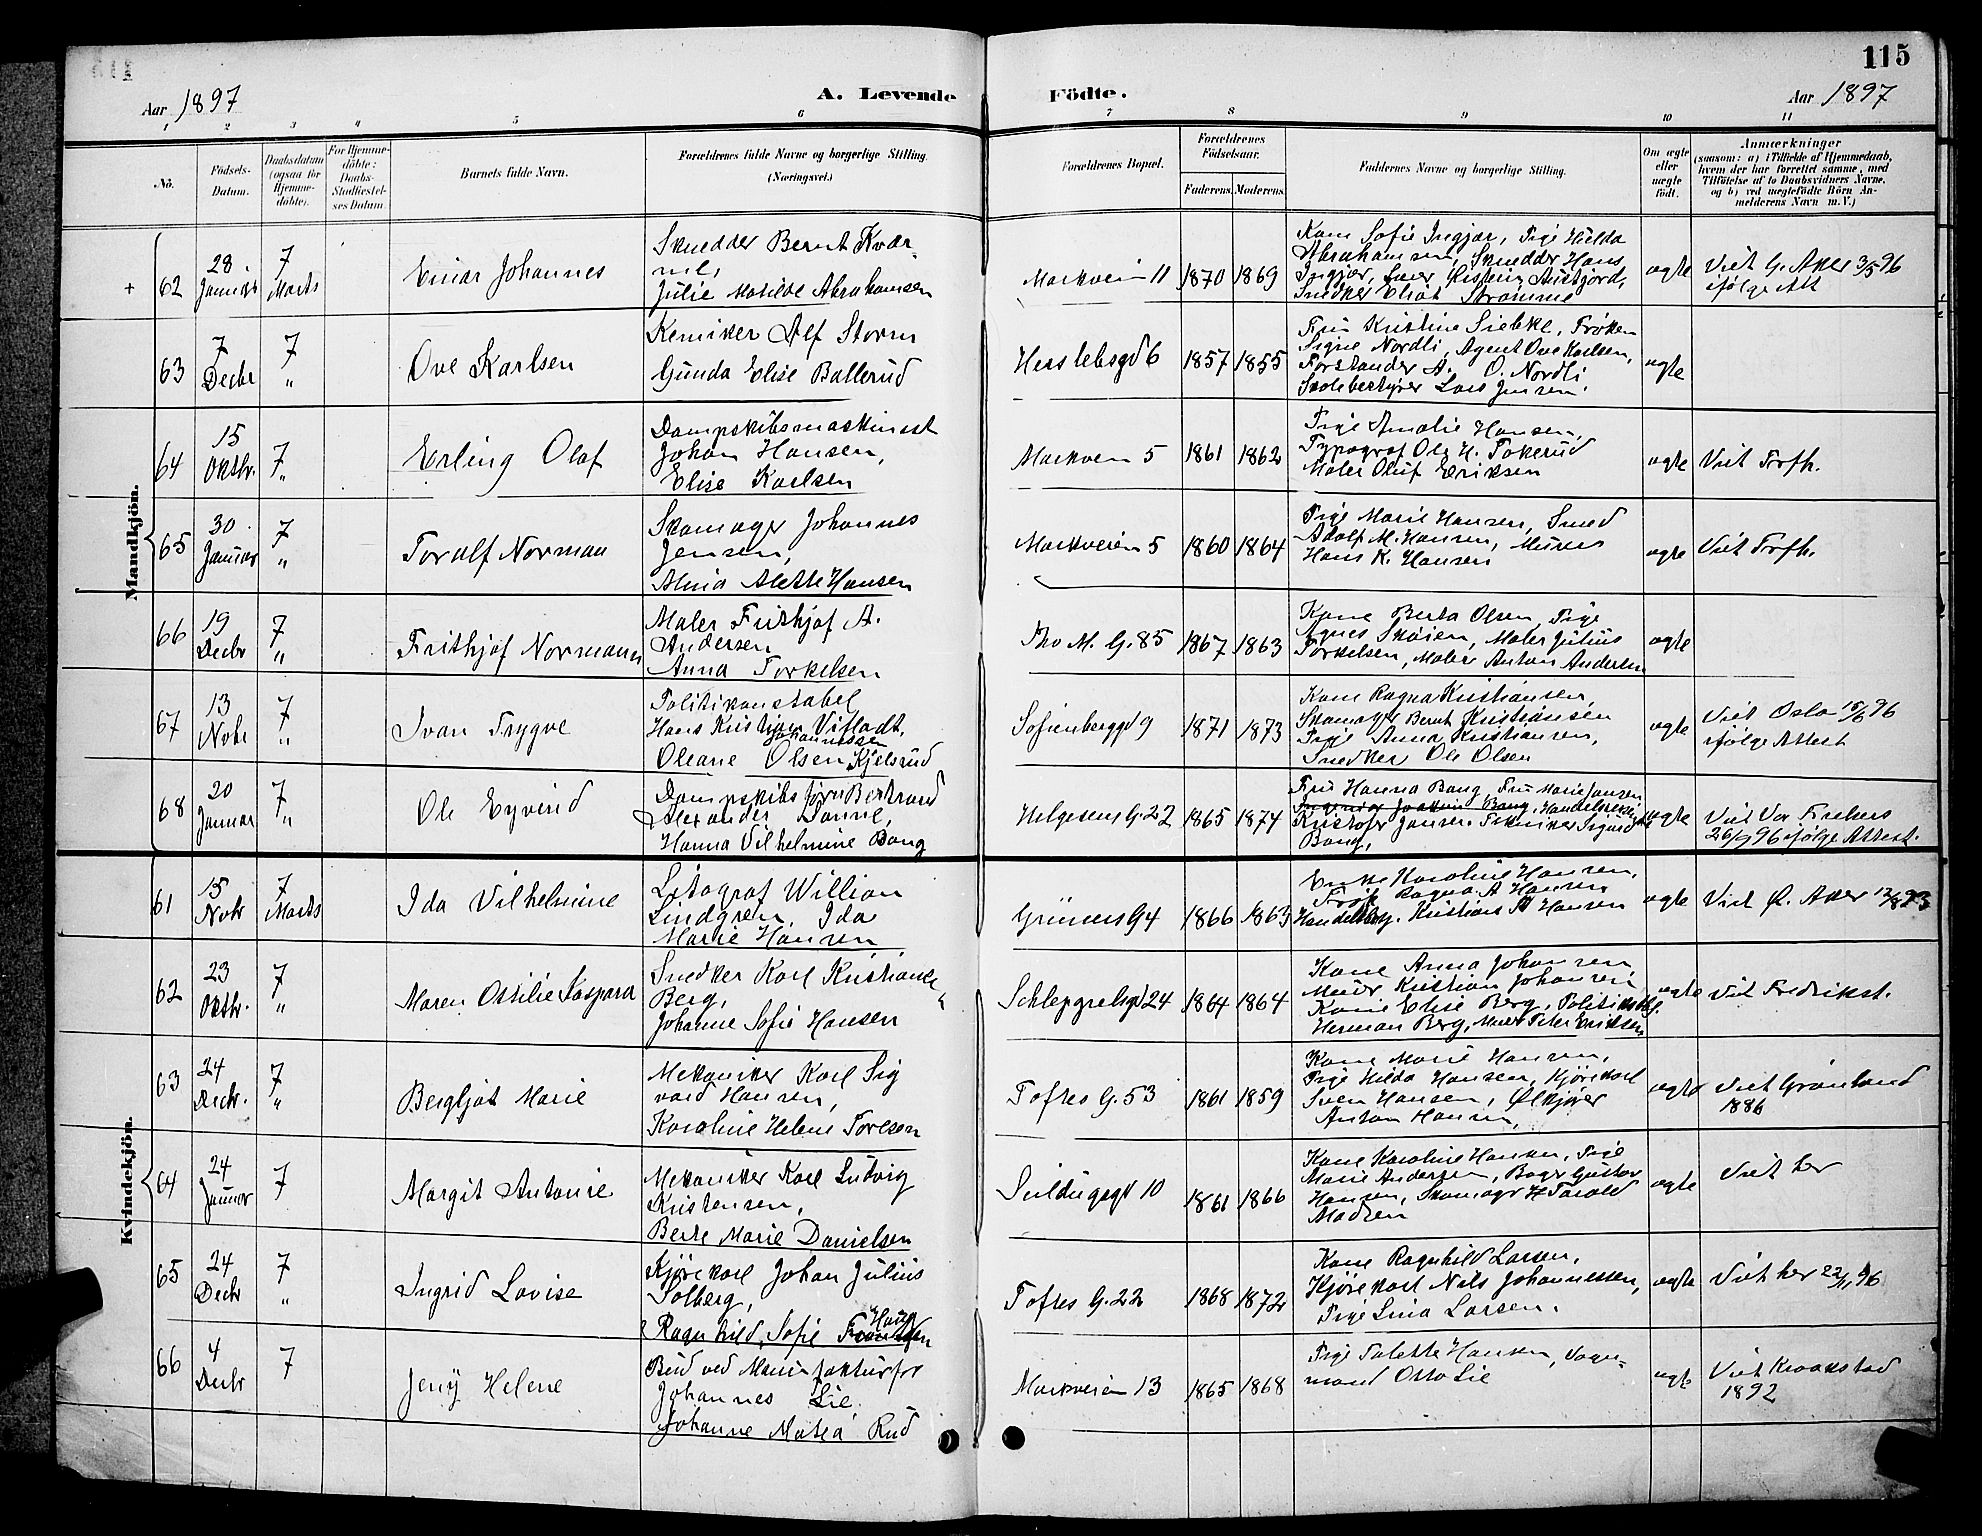 115
Aar 1897
A. Levende Födte.
Aar 1897
1 2 3 4 5 6 7 8 9 10 11
No.
Födsels-
Datum.
Daabsdatum
(ogsaa for
Hjemme-
döbte).
For Hjemme-
döbte:
Daabs-
Stadfæstel-
ses Datum.
Barnets fulde Navn.
Forældrenes fulde Navne og borgerlige Stilling.
(Næringsvei.)
Forældrenes Bopæl.
Forældrenes
Födselsaar.
Faderens.
Moderens.
Faddernes Navne og borgerlige Stilling.
Om ægte
eller
uægte
födt.
Anmærkninger
(saasom: a) i Tilfælde af Hjemmedaab,
hvem der har forrettet samme, med
Tilföielse af to Daabsvidners Navne,
og b) ved uægtefödte Börn An-
melderens Navn m. V.)
Mandkjön.
+ 62
28
Januar
7
Marts
Einar Johannes
Skrædder Bernt Kvær-
ne,
Julie Matilde Abrahamsen
Markveien 11
1870 1869
Kone Sofie Ingjær, Pige Hilda
Abrahamsen, Skrædder Hans
Ingjær,
Snedker Eliat Strømme
ægte
Viet G. Aker 3/5 96
ifølge Att
63
7
Decbr
7
"
Ove Karlsen
Kemiker Alf Storm
Gunda Elise Ballerud
Hesselbsgd 6
1857 1855
Fru Kristine Siebke, Frøken
Signe Nordli, Agent Ove Karlsen,
Forstander A. O. Nordli
Skolebestyrer Lars Jensen.
ægte
64
15
Oktbr.
7
"
Erling Olaf
Dampskibsmaskinist
Johan Hansen,
Elise Karlsen
Markveien 5
1861 1862
Pige Amalie Hansen,
Typograf Ole H. Tokerud
Maler Oluf Eriksen
ægte
Viet Trefh.
65
30
Januar
7
"
Toralf Norman
Skomager Johannes
Jensen,
Alma Alette Hansen
Markveien 5
1860 1864
Pige Marie Hansen, Smed
Adolf M. Hansen, Murer
Hans K. Hansen
ægte
Viet Trefh.
66
19
Decbr
7
"
Frithjof Normann
Maler Frithjof A.
Andersen
Anna Torkelsen
Tho M. G. 85
1867 1863
Kone Berta Olsen, Pige
Agnes Skøien, Maler Julius
Torkelsen, Maler Anton Andersen
ægte
67
13
Novbr
7
"
Ivar Trygve
Politikonstabel
Hans Kristian Vifladt,
Johannessen
Oleane Olsen Kjelsrud
Sofienberggd 9
1871 1873
Kone Ragna Kristiansen,
Skomager Bernt Kristiansen
Pige Anna Kristiansen,
Snedker Ole Olsen
ægte
Viet Oslo 15/6 96
ifølge Attest
68
20
Januar
7
"
Ole Eyvind
Dampskibsfører Bertrand
Alexander Danne,
Hanna Vilhelmine Bang
Helgesens G. 22
1865 1874
Fru Hanna Bang, Fru Marie Jansen
Ingeniør Joakim Bang,
Kristofer Jansen Tekniker Sigurd
Bang,
ægte
Viet Vor Frelsers
26/9 96 ifølge Attest.
Kvindekjön.
61
15
Novbr
7
Marts
Ida Vilhelmine
Litograf Willian
Lindgren, Ida
Marie Hansen
Grüners G 4
1866 1863
Enke Karoline Hansen,
Frøk Ragna A Hansen
Handelsbg. Kristian A Hansen
ægte
Viet Ø. Aker 12/8 93
62
23
Oktbr.
7
"
Maren Ottilie Kaspara
Snedker Karl Kristian
Berg,
Johanne Sofie Hansen
Schleppegrelsgd 24
1864 1864
Kone Anna Johansen,
Murer Kristian Johansen,
Kone Elise Berg, Politikstbl.
Herman Berg, Murer Peter Eriksen
ægte
Viet Fredrikst.
63
24
Decbr.
7
"
Bergljot Marie
Mekaniker Karl Sig
vard Hansen,
Karoline Helene Toresen
Toftes G. 53
1861 1859
Kone Marie Hansen,
Pige Hilda Hansen, Kjørekarl
Sven Hansen, Ølkjører
Anton Hansen,
ægte
Viet Grønland
1886
64
24
Januar
7
Margit Antonie
Mekaniker Karl Ludvig
Kristensen,
Berte Marie Danielsen
Seildugsgd 10
1861 1866
Kone Karoline Hansen, Pige
Marie Andersen, Bager Gustav
Hansen, Skomager H Harald
Madsen
ægte
Viet her
65
24
Decbr
7
"
Ingrid Lovise
Kjørekarl Johan Julius
Solberg,
Ragnhild Sofie Haug
Toftes G. 22
1868 1872
Kone Ragnhild Larsen,
Kjørekarl Nils Johannessen,
Pige Lina Larsen.
ægte
Viet her 22/11 96
66
4
Decbr
7
Jeny Helene
Bud ved Manufakturfor
Johannes Lie
Johanne Matea Rud
Markveien 13
1865 1868
Pige Talette Hansen, Vogn-
mand Otto Lie
ægte
Viet Kraakstad
1892